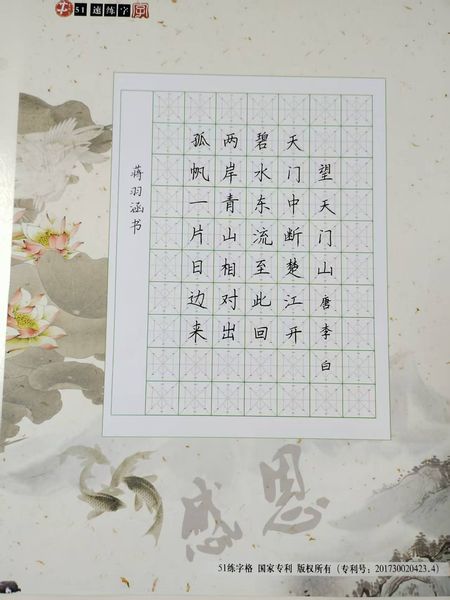 51速练字
望天门山 唐 李白
天门中断楚江开
碧水东流至此回
两岸青山相对出
孤帆一片日边来
蒋羽涵书
感恩
51练字格 国家专利 版权所有（专利号：201730020423.4）